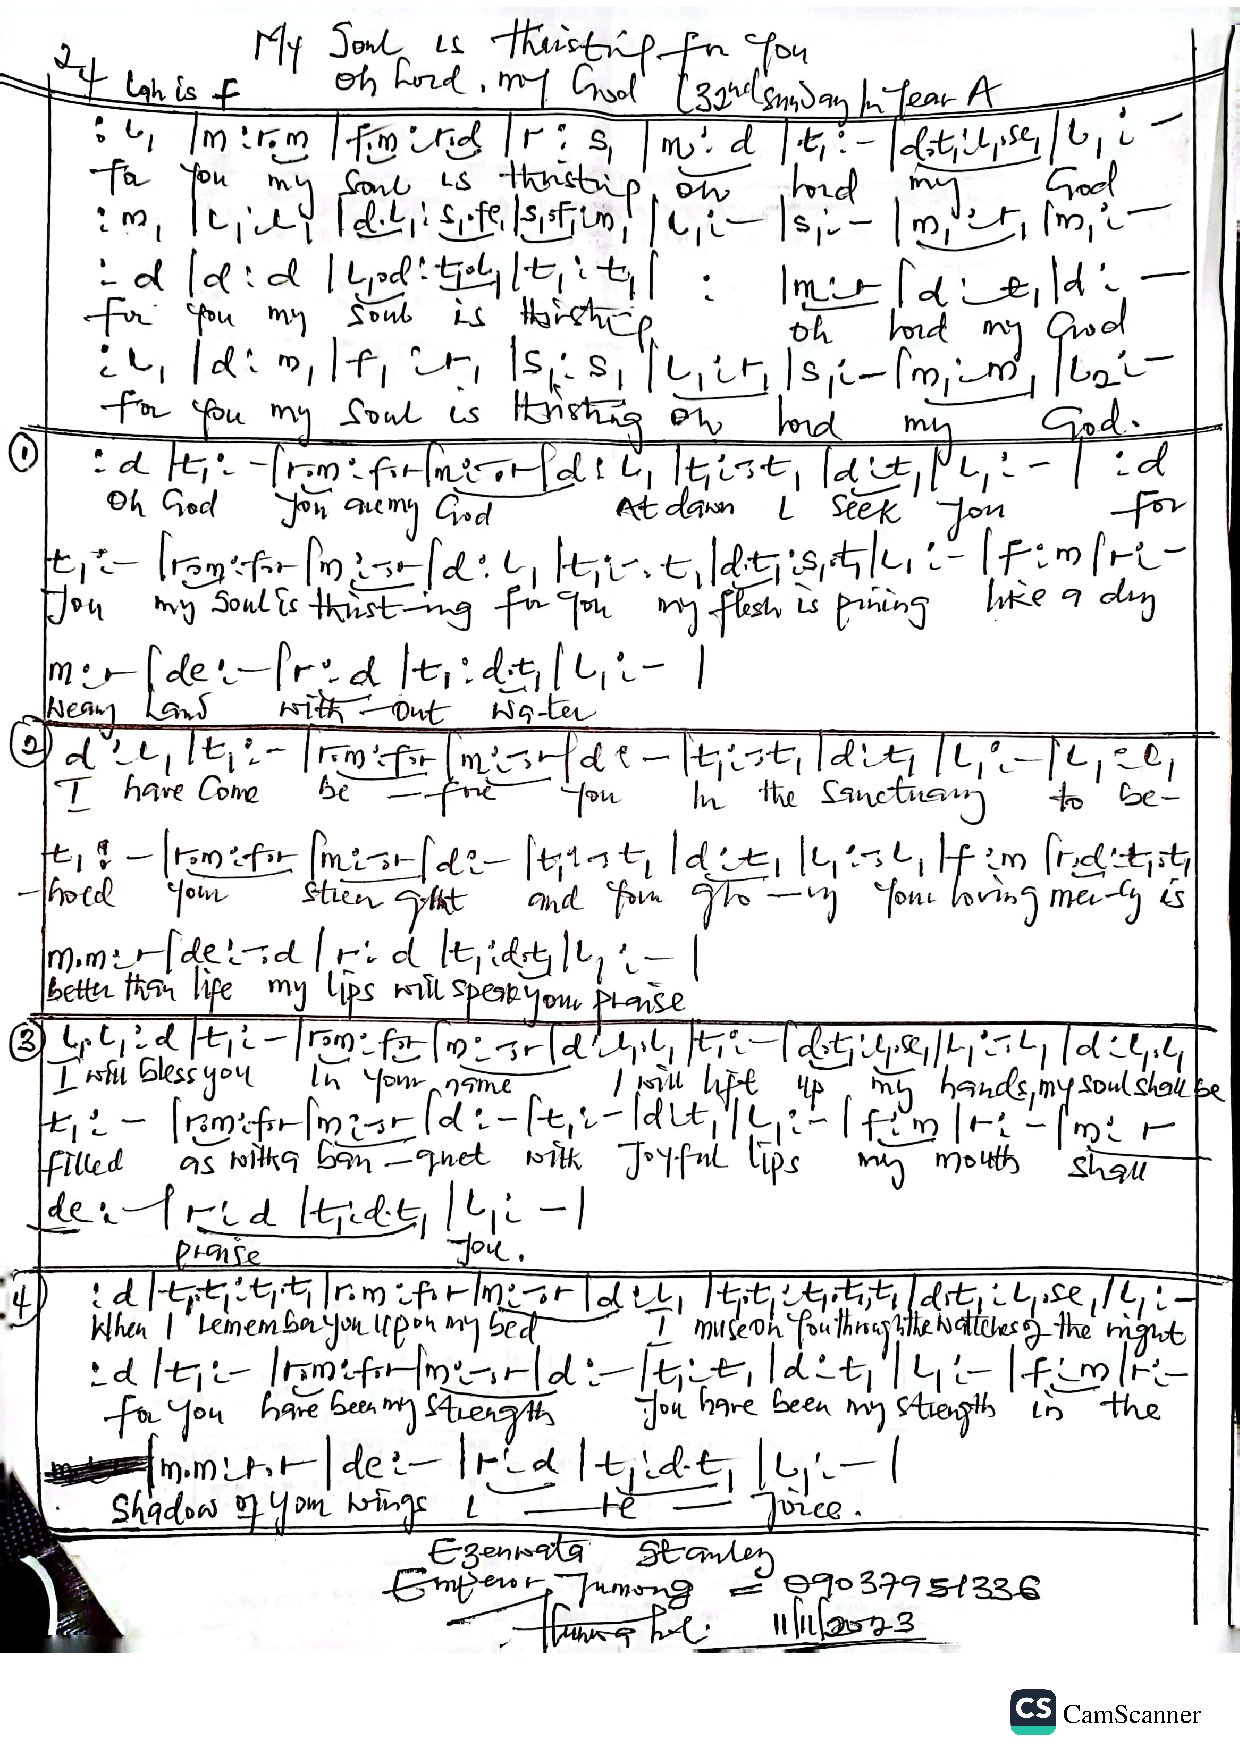 My Soul is thirsting for You
24 Lah is f oh Lord, my God (32nd Sunday In Year A
: l₁ |m : r.m |f.m : r.d |r : s₁ |m : d |t₁ : - |d.t₁ : l₁.se₁ |l₁ : -
For you my Soul is thirsting oh Lord my God
: m₁ |l₁ : l₁ |d.l₁ : s₁.fe₁ |s₁.f₁ : m₁ |l₁ : - |s₁ : - |m₁ : r₁ |m₁ : -
: d |d : d |l₁.d : t₁.l₁ |t₁ : t₁ | : |m : r |d : t₁ |d : -
For you my Soul is thirsting oh Lord my God
: l₁ |d : m₁ |f₁ : r₁ |s₁ : s₁ |l₁ : r₁ |s₁ : - |m₁ : m₁ |l₂ : -
For you my Soul is thirsting oh Lord my God.
① : d |t₁ : - |r.m : f.r |m : -.r |d : l₁ |t₁ : -.t₁ |d : t₁ |l₁ : - | : d
Oh God You are my God At dawn I Seek You For
t₁ : - |r.m : f.r |m : -.r |d : l₁ |t₁ : -.t₁ |d.t₁ : s₁.t₁ |l₁ : - |f : m |r : -
You my Soul is thirst-ing for you my flesh is pining like a dry
m : r |de : - |r : d |t₁ : d.t₁ |l₁ : - |
Weary Land with-out wa-ter
② d : l₁ |t₁ : - |r.m : f.r |m : -.r |d : - |t₁ : -.t₁ |d : t₁ |l₁ : - |l₁ : l₁
I have Come be - fore you In the Sanctuary to be-
t₁ : - |r.m : f.r |m : -.r |d : - |t₁ : -.t₁ |d : t₁ |l₁ : -.l₁ |f : m |r.d : t₁.t₁
-hold your stren gtht and your glo - ry Your loving mer-cy is
m.m : r |de : -.d |r : d |t₁ : d.t₁ |l₁ : - |
better than life my lips will speak your praise
③ l₁.l₁ : d |t₁ : - |r.m : f.r |m : -.r |d : l₁.l₁ |t₁ : - |d.t₁ : l₁.se₁ |l₁ : -.l₁ |d : l₁.l₁
I will bless you In your name I will lift up my hands, my soul shall be
t₁ : - |r.m : f.r |m : -.r |d : - |t₁ : - |d : t₁ |l₁ : - |f : m |r : - |m : r
filled as with a ban - quet with Joyful lips my mouth shall
de : - |r : d |t₁ : d.t₁ |l₁ : - |
praise You.
④ : d |t₁.t₁ : t₁.t₁ |r.m : f.r |m : -.r |d : l₁ |t₁.t₁ : t₁.t₁.t₁ |d.t₁ : l₁.se₁ |l₁ : -
When I remember you upon my bed I muse on You through the watches of the night
: d |t₁ : - |r.m : f.r |m : -.r |d : - |t₁ : t₁ |d : t₁ |l₁ : - |f : m |r : -
for you have been my strength You have been my strength in the
|m.m : r.r |de : - |r : d |t₁ : d.t₁ |l₁ : - |
Shadow of your wings I - re - Joice.
Ezenwata Stanley
Emperor Jumong = 09037951336
11/11/2023
CS CamScanner